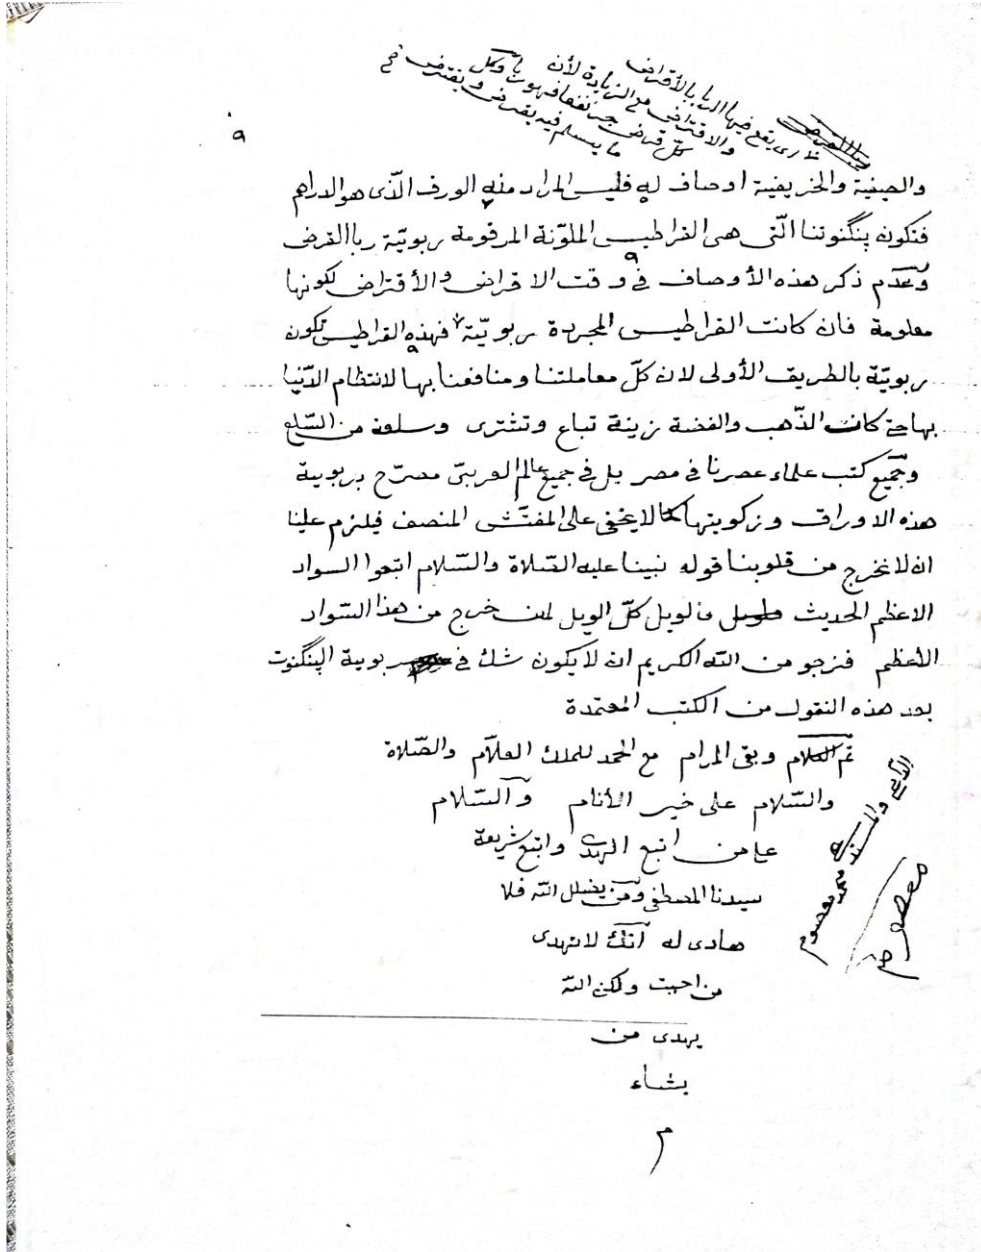 ٩
أى يقع فيها الربا بالأقراض
والاقتراض مع الزيادة لأن
كلّ قرض جرّ نفعا فهو ربا وكل
ما يسلم فيه يقرض ويقترض
والصيفية والخريفية اوصاف له فليس المراد منه الورق الّذى هو الدراهم
فتكون پنگنوتنا الّتى هى القراطيس الملوّنة المرقومة ربويّة ربا القرض
وعدم ذكر هذه الأوصاف فى وقت الاقراض والأقتراض لكونها
معلومة فان كانت القراطيس المجردة ربويّة فهذه القراطيس تكون
ربويّة بالطريق الأولى لان كلّ معاملتنا ومنافعنا بها لانتظام الدّنيا
بها حتى كانت الذّهب والفضة زينة تباع وتشترى وسلعة من السّلع
وجميع كتب علماء عصرنا فى مصر بل فى جميع عالم العربىّ مصرّح بربوية
هذه الاوراق وزكويتها كما لا يخفى على المفتّش المنصف فيلزم علينا
ان لا نخرج من قلوبنا قوله نبينا عليه الصّلاة والسّلام اتبعوا السواد
الاعظم الحديث فالويل كلّ الويل لمن خرج من هذا السّواد
الأعظم فنرجو من اللّه الكريم ان لا يكون شك فى ربوية الپنگنوت
بعد هذه النقول من الكتب المعتمدة
تمّ الكلام وبقى المرام مع الحمد للملك العلاّم والصّلاة
والسّلام على خير الأنام والسّلام
على من اتبع الهدى واتبع شريعة
سيدنا المصطفى ومن يضلل اللّه فلا
هادى له انّك لا تهدى
من احببت ولكن اللّه
يهدى من
يشاء
م
محمد معصوم
معصوم